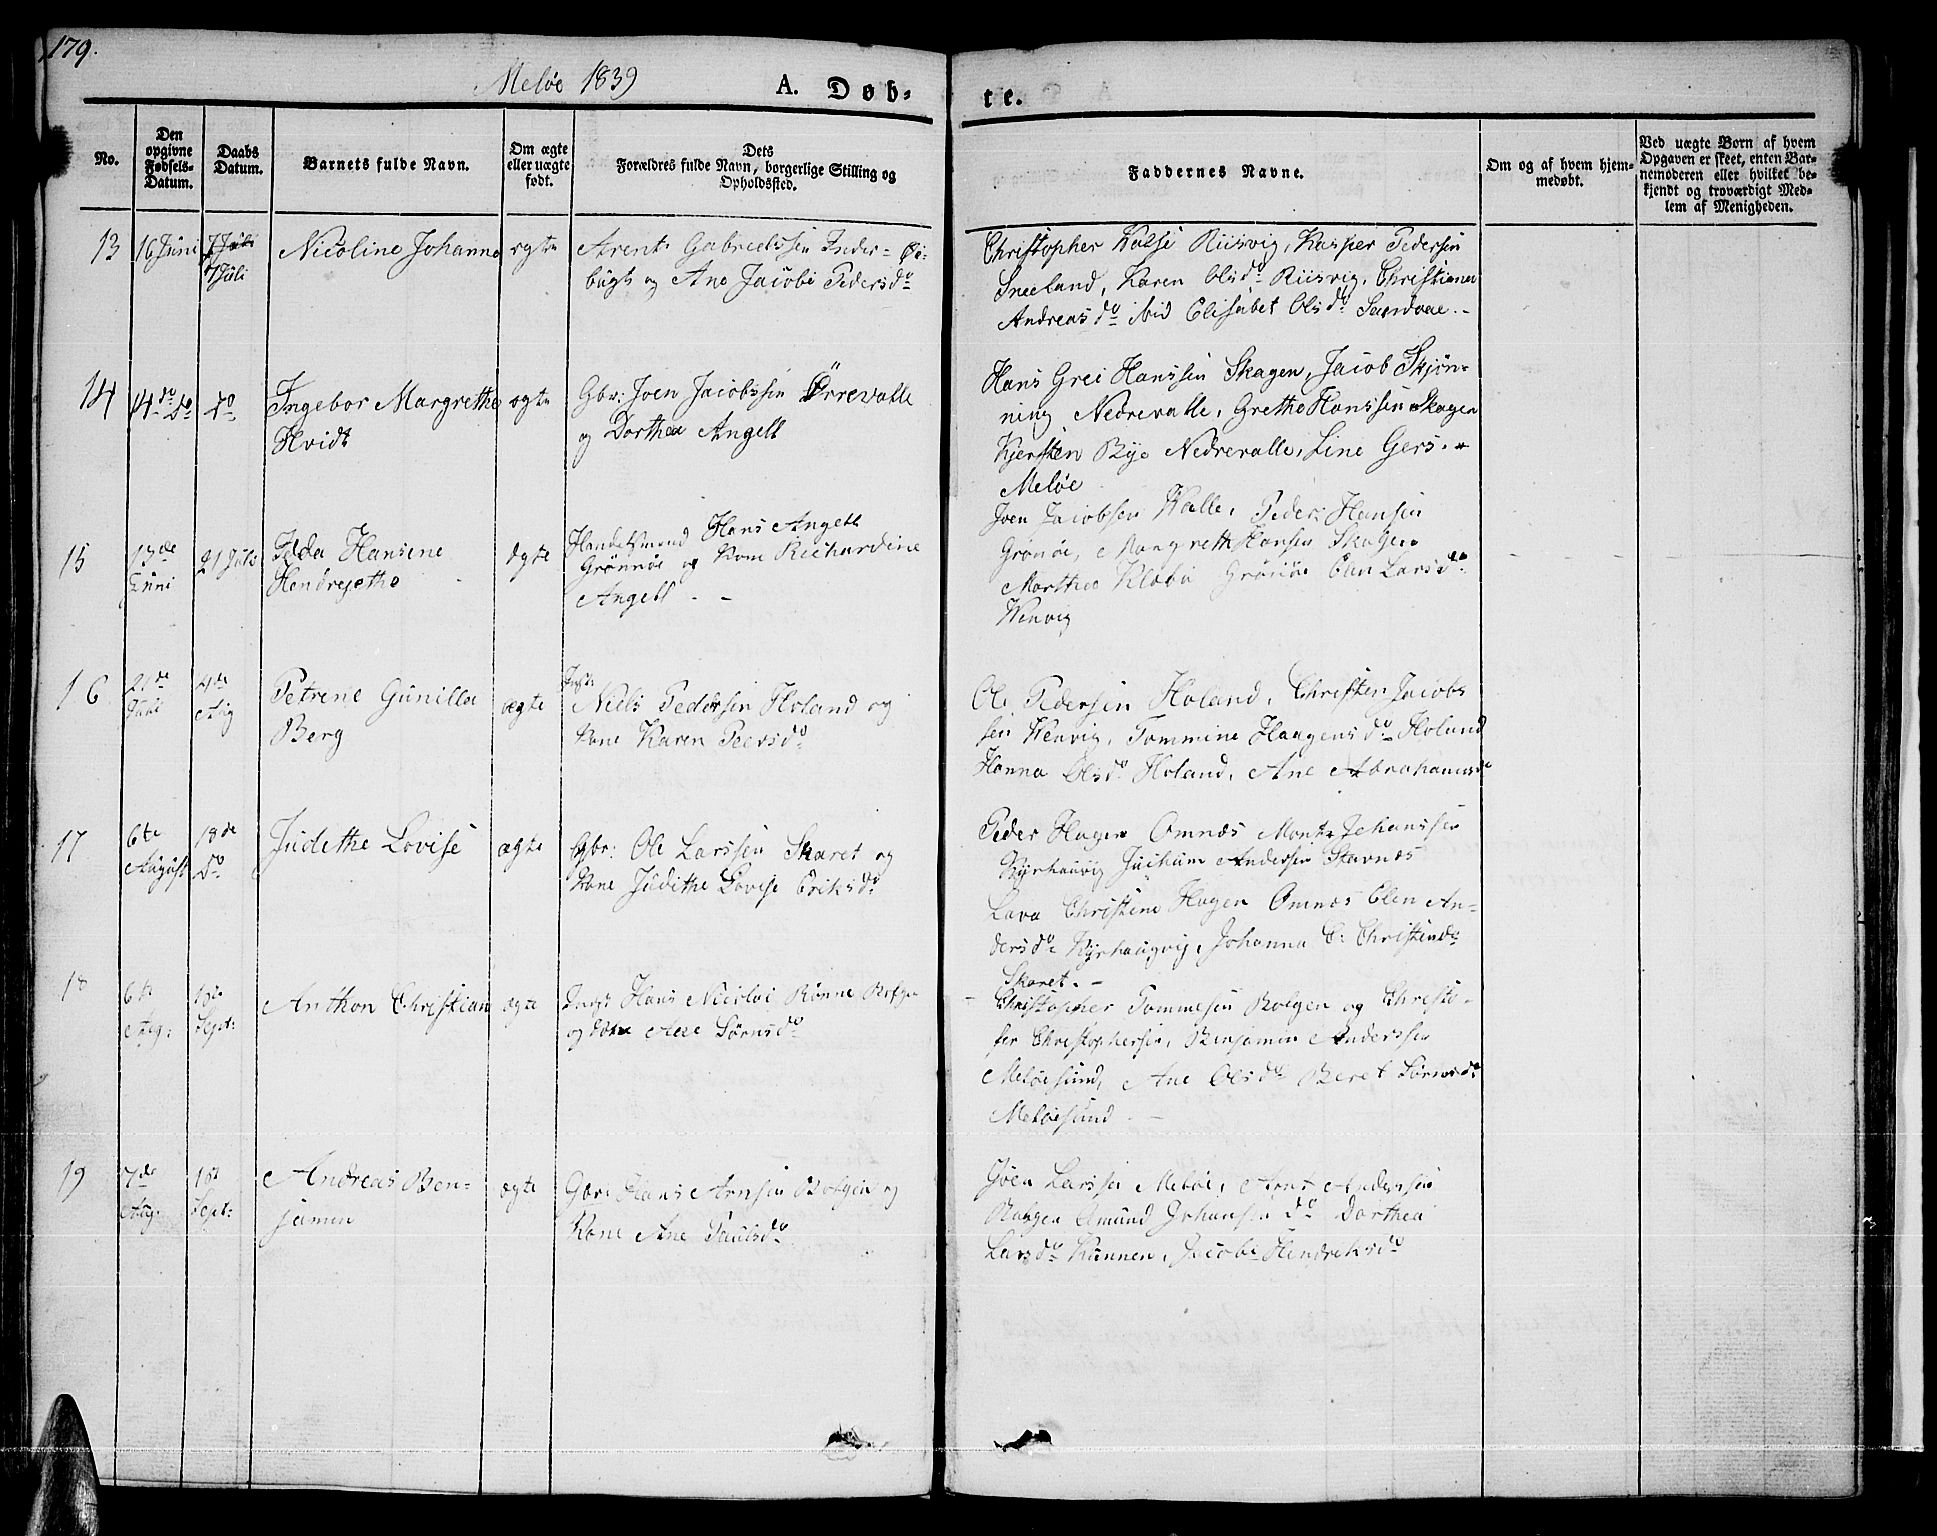 179.
Meløe 1839
A. Døb-
te.
No.
Den opgivne Fødsels-Datum.
Daabs Datum.
Barnets fulde Navn.
Om ægte eller uægte født.
Dets Forældres fulde Navn, borgerlige Stilling og Opholdssted.
Faddernes Navne.
Om og af hvem hjemmedøbt.
Ved uægte Børn af hvem Opgaven er skeet, enten Barnemoderen eller hvilket bekjendt og troværdigt Medlem af Menigheden.
13 16 Juni 7 Juli Nicoline Johanna ægte
Arent Gabrielssen Inder-
og Ane Jacobi Pedersdº
Christopher Risvig, Kasper Pedersen
Sneeland, Karen Olsdº Riisvig, Christiana
Andreasdº ibid Elisabet Olsdº Sandaae.
14 14 dº dº dº Ingebor Margrethe
Hvidt
ægte
Gbr: Joen Jacobssen Örrevalle
og Dorthea Angell
Hans Grei Hanssen Skagen, Jacob Skjøn-
ning Nedrevalle, Grethe Hanssen Skagen
Kjersten Bye Nedrevalle, Line Gers.
Meløe
15 13de
Juni
21 Juli
Hansine
Hendrejethe
ægte
Handelsmand Hans Angell
Grönnöe og Kone Richardine
Angell. -
Joen Jacobsen Walle, Peder Hansen
Grönöe, Margreth Hansen Skagen
Marthea Klæbo Grönöe Elen Larsdº
Wenvig
16 21de
Juli
4de
Aug
Petrine Gunilla
Berg
ægte
Inst:
Niels Pedersen Holand og
Kone Karen Peersdº
Ole Pedersen Holand, Christen Jacobs
sen Wenvig, Tommine Haagensdº Holand
Hanna Olsdº Holand, Ane Abrahamsdº
17 6te
August
18de
dº
Judithe Lovise
ægte
Gbr: Ole Larssen Skaret og
Kone Judithe Lovise Eriksdº
Peder Hagen Omnæs Johanssen
Jochum Andersen Stavnæs
Lava Christine Hagen Omnæs Elen An-
dersdº Kyrhaugvig, Johanna C: Christensdº
Skaret. -
18 6te
Aug:
1ste
Sept:
Anthon Christian
ægte
Inst: Hans Nicolai Rönne Bolgen
og Kone Ane Sörnsdº
Christopher Tommesen Bolgen og Christo-
fer Christophersen, Benjamin Anderssen
Meløesund, Ane Olsdº Beret Sörnsdº
Meløesund. -
19 7de
Aug:
1ste
Sept:
Andreas Ben-
jamin
ægte
Gbr: Hans Arnsen Bolgen og
Kone Ane Paulsdº
Joen Larssen Meløe, Arnt Anderssen
Bolgen Amund Johansen dº Dorthea
Larsdº Kunnen, Jacobe Hendriksdº